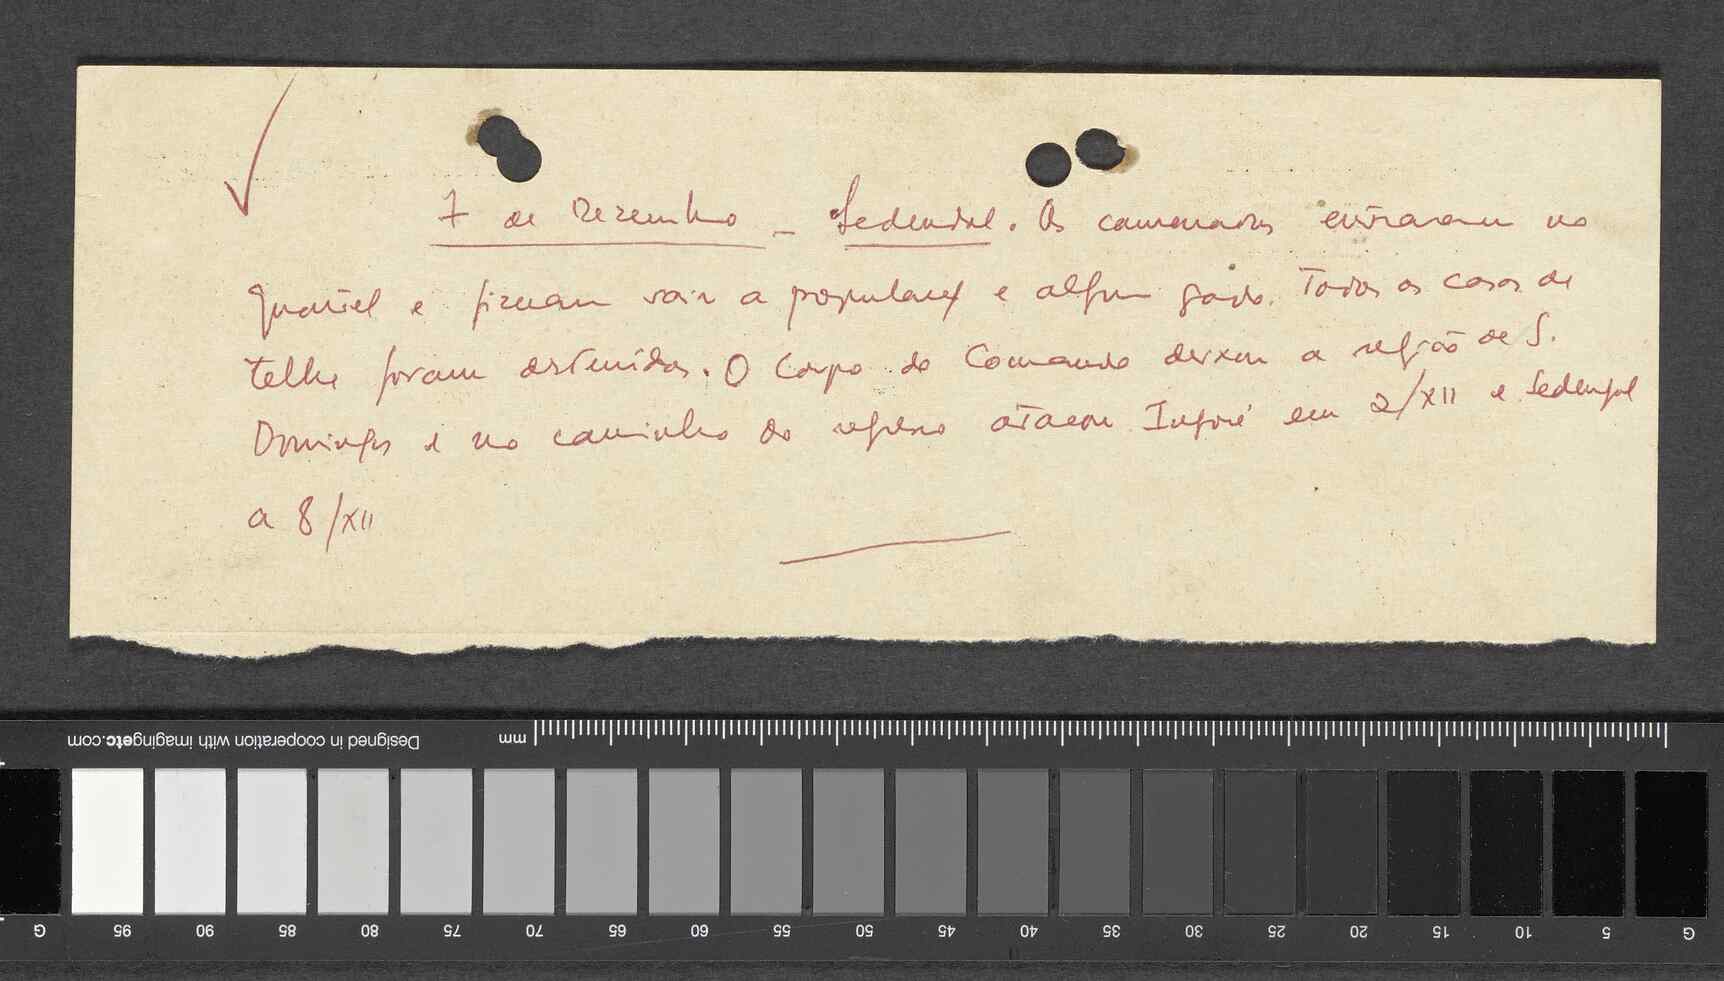 7 de Dezembro - Sedengal. Os camaradas entraram no
Quartel e fizeram sair a população e algum gado. Todas as casas de
telha foram destruidas. O Corpo do Comando deixou a região de S.
Domingos e no caminho do regresso atacou Ingoré em 2/XII e Sedengal
a 8/XII
Designed in cooperation with imagingetc.com
mm
G 95 90 85 80 75 70 65 60 55 50 45 40 35 30 25 20 15 10 5 G